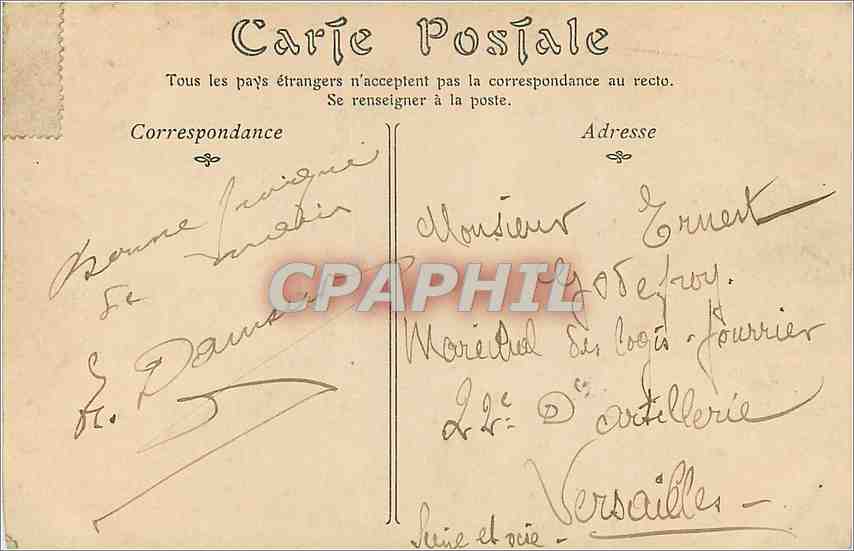 Carte Postale
Tous les pays étrangers n'acceptent pas la correspondance au recto.
Se renseigner à la poste.
Correspondance
Adresse
Bonne
de
Monsieur Ernest
Godefroy.
Maréchal des logis - fourrier
22e D' artillerie
Versailles -
Seine et oise -
CPAPHIL